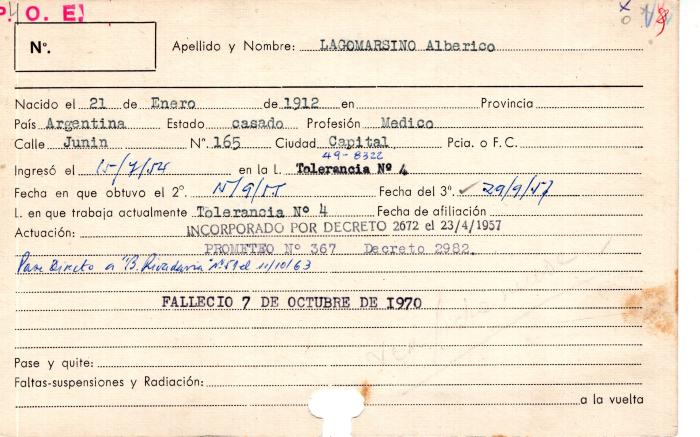 P. O. E.
Nº.
Apellido y Nombre: LAGOMARSINO Alberico
Nacido el 21 de Enero de 1912 en Provincia
País Argentina Estado casado Profesión Medico
Calle Junin Nº. 165 Ciudad Capital Pcia. o F. C.
49-8322
Ingresó el 15/7/54 en la L. Tolerancia Nº 4
Fecha en que obtuvo el 2º. 15/9/55 Fecha del 3º. 29/9/57
L. en que trabaja actualmente Tolerancia Nº 4 Fecha de afiliación
Actuación: INCORPORADO POR DECRETO 2672 el 23/4/1957
PROMETEO Nº 367 Decreto 2982.
Pase Directo a "B. Rivadavia" Nº 51 el 11/10/63
FALLECIO 7 DE OCTUBRE DE 1970
Pase y quite:
Faltas-suspensiones y Radiación:
a la vuelta